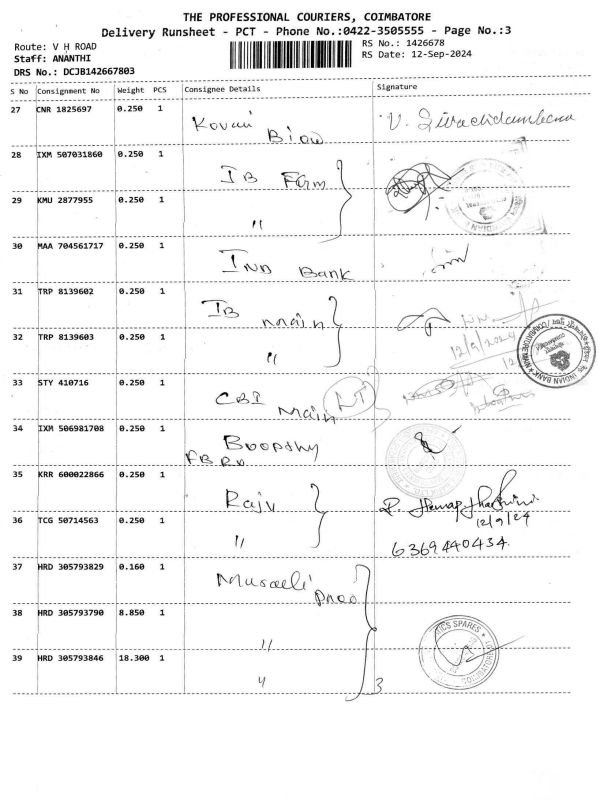 THE PROFESSIONAL COURIERS, COIMBATORE
Delivery Runsheet - PCT - Phone No.:0422-3505555 - Page No.:3
Route: V H ROAD
RS No.: 1426678
Staff: ANANTHI
RS Date: 12-Sep-2024
DRS No.: DCJB142667803
S No Consignment No Weight PCS Consignee Details Signature
27 CNR 1825697 0.250 1 Kovai
28 IXM 507031860 0.250 1 IB Farm
29 KMU 2877955 0.250 1 "
30 MAA 704561717 0.250 1 IND Bank
31 TRP 8139602 0.250 1 IB Main
32 TRP 8139603 0.250 1 " 12/9/2024
33 STY 410716 0.250 1 CBI Main
34 IXM 506981708 0.250 1 Boopthy
35 KRR 600022866 0.250 1 Rajv
12/9/24
36 TCG 50714563 0.250 1 " 6369440434
37 HRD 305793829 0.160 1
38 HRD 305793790 8.850 1 "
39 HRD 305793846 18.300 1 " 3